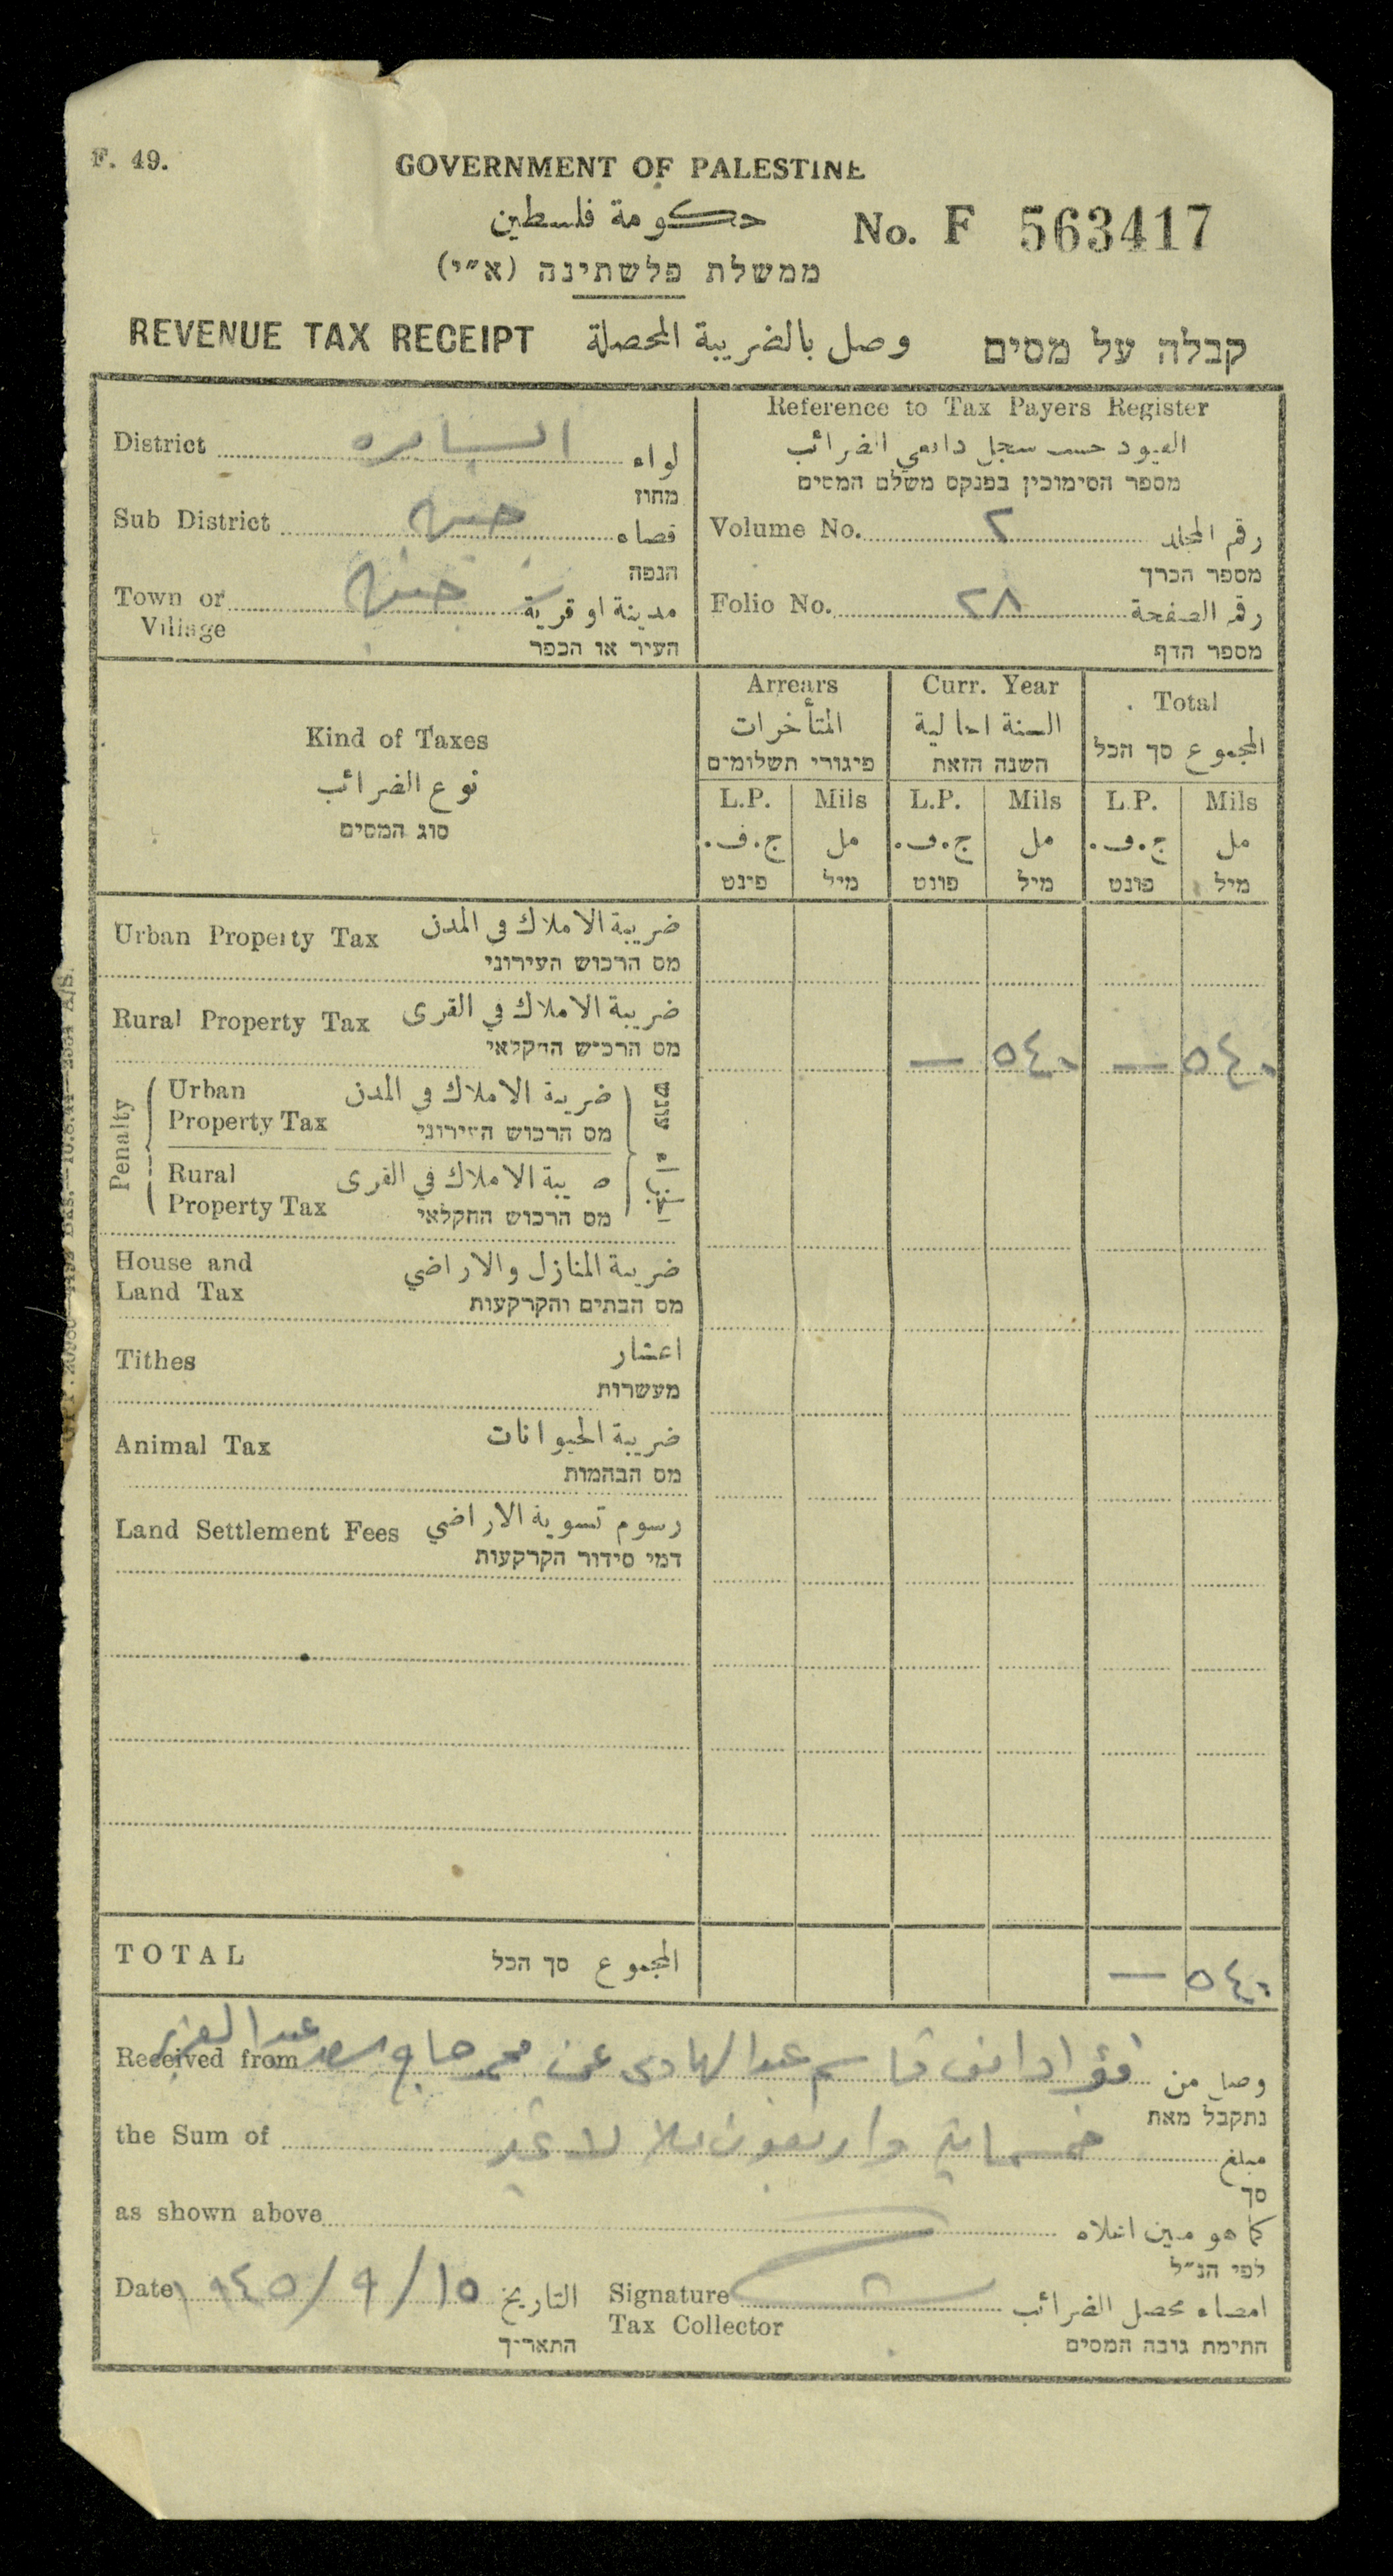 F. 49.
GOVERNMENT OF PALESTINE
حكومة فلسطين
No. F 563417
ממשלת פלשתינה (א״י)
REVENUE TAX RECEIPT وصل بالضريبة المحصلة קבלה על מסים
District السامره لواء
מחוז
Sub District جنين قضاء
הנפה
Town or Village جنين مدينة او قرية
העיר או הכפר
Reference to Tax Payers Register
القيود حسب سجل دافعي الضرائب
מספר הסימוכין בפנקס משלם המסים
Volume No. ٢ رقم المجلد
מספר הכרך
Folio No. ٢٨ رقم الصفحة
מספר הדף
Kind of Taxes
نوع الضرائب
סוג המסים
Arrears
المتأخرات
פיגורי תשלומים
Curr. Year
السنة الحالية
השנה הזאת
Total
المجموع סך הכל
L.P. Mils L.P. Mils L.P. Mils
ج.ف. مل ج.ف. مل ج.ف. مل
פונט מיל פונט מיל פונט מיל
Urban Property Tax ضريبة الاملاك في المدن
מס הרכוש העירוני
Rural Property Tax ضريبة الاملاك في القرى
מס הרכוש החקלאי
— ٥٤٠ — ٥٤٠
Penalty
Urban Property Tax ضريبة الاملاك في المدن
מס הרכוש העירוני
עונש
Rural Property Tax ضريبة الاملاك في القرى
מס הרכוש החקלאי
House and Land Tax ضريبة المنازل والاراضي
מס הבתים והקרקעות
Tithes اعشار
מעשרות
Animal Tax ضريبة الحيوانات
מס הבהמות
Land Settlement Fees رسوم تسوية الاراضي
דמי סידור הקרקעות
TOTAL المجموع סך הכל — ٥٤٠
Received from فؤاد افندي قاسم عبد الهادي عن محمد حاج اسعد عبد العزيز وصل من
נתקבל מאת
the Sum of خمسماية واربعون ملا لا غير مبلغ
סך
as shown above كما هو مبين اعلاه
לפי הנ״ל
Date ١٥/٩/١٩٤٥ التاريخ
התאריך
Signature Tax Collector امضاء محصل الضرائب
חתימת גובה המסים